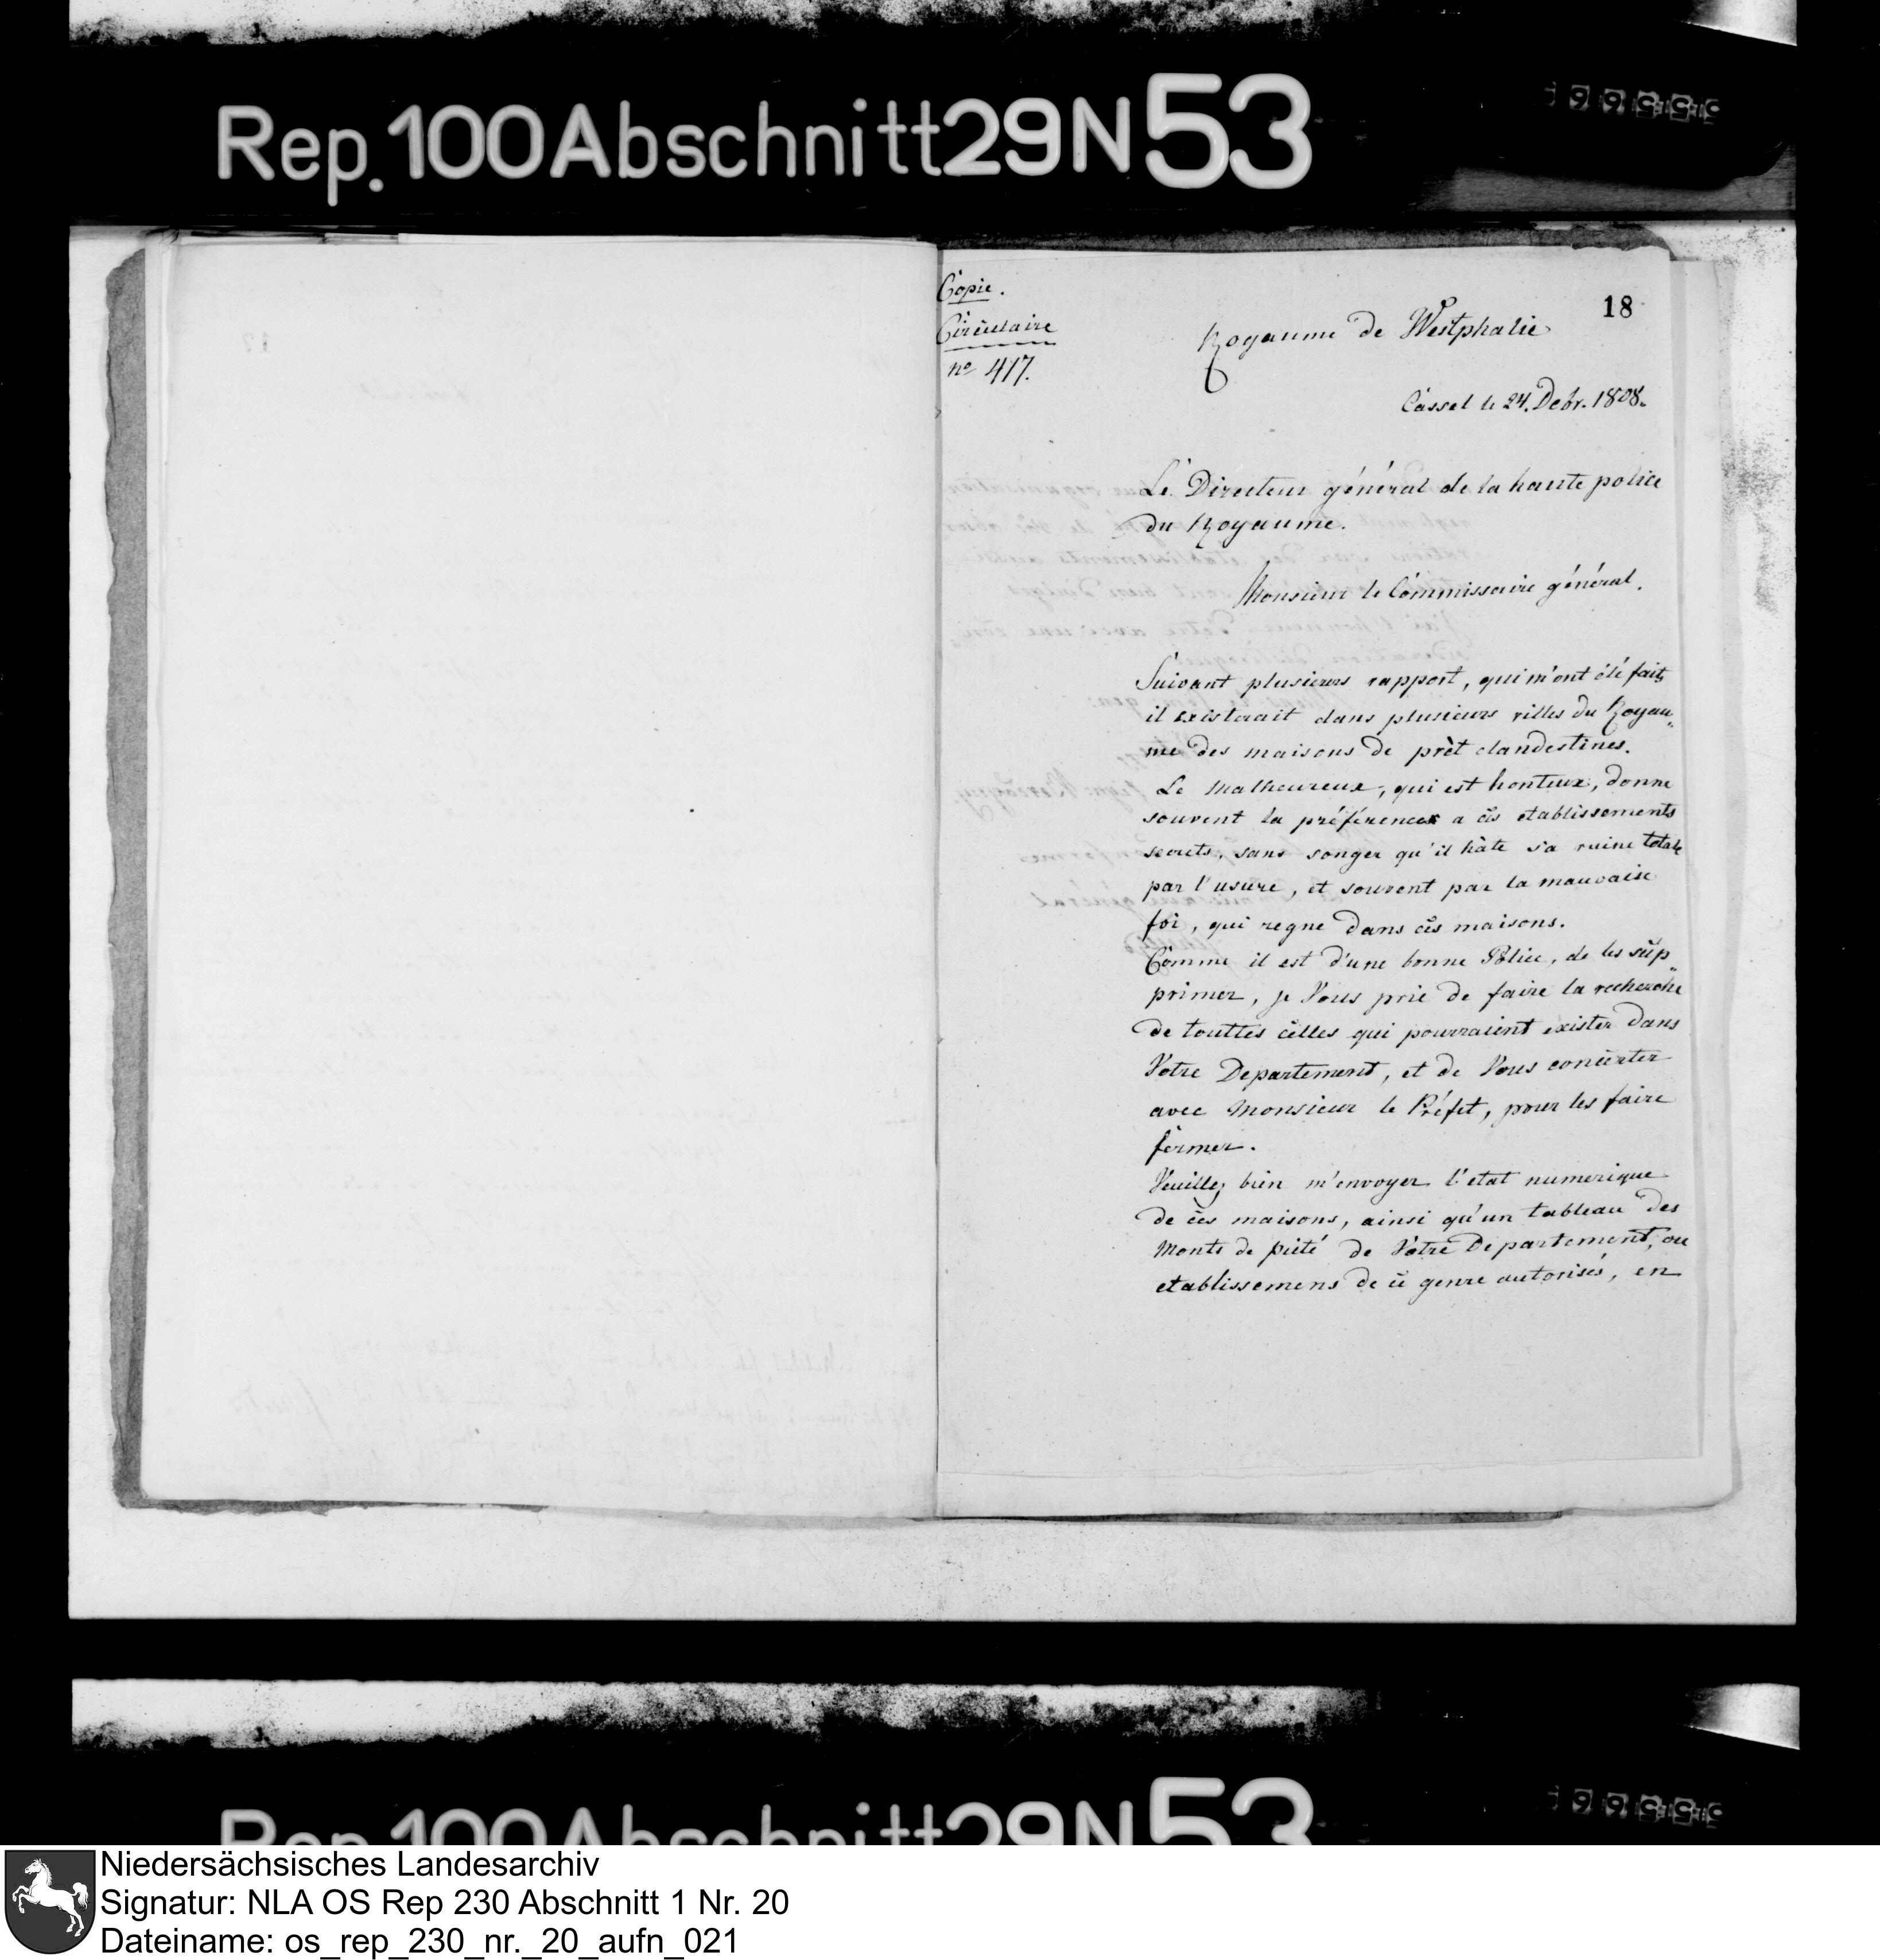 Rep. 100 Abschnitt 29 N 53
Copie.
Circulaire
no 417.
18
Royaume de Westphalie
Cassel le 24. Debr. 1808.
Le Directeur général de la haute police
du Royaume.
Monsieur le Commissaire général.
Suivant plusieurs rapport, qui m'ont été faits
il existerait dans plusieurs villes du Royau„
me des maisons de prèt clandestines.
Le Malheureux, qui est honteux, donne
souvent la préférence a ces etablissements
secrets, sans songer qu'il hâte sa ruine totale
par l'usure, et souvent par la mauvaise
foi, qui regne dans ces maisons.
Comme il est d'une bonne Police, de les sup„
primer, je Vous prie de faire la recherche
de touttes celles qui pourraient exister dans
Votre Departement, et de Vous concerter
avec Monsieur le Préfet, pour les faire
fermer.
Veuillez bien m'envoyer l'etat numerique
de ces maisons, ainsi qu'un tableau des
Monts de pieté de Votre Departement, ou
etablissemens de ce genre autorisés, en
Rep. 100 Abschnitt 29 N 53
Niedersächsisches Landesarchiv
Signatur: NLA OS Rep 230 Abschnitt 1 Nr. 20
Dateiname: os_rep_230_nr._20_aufn_021